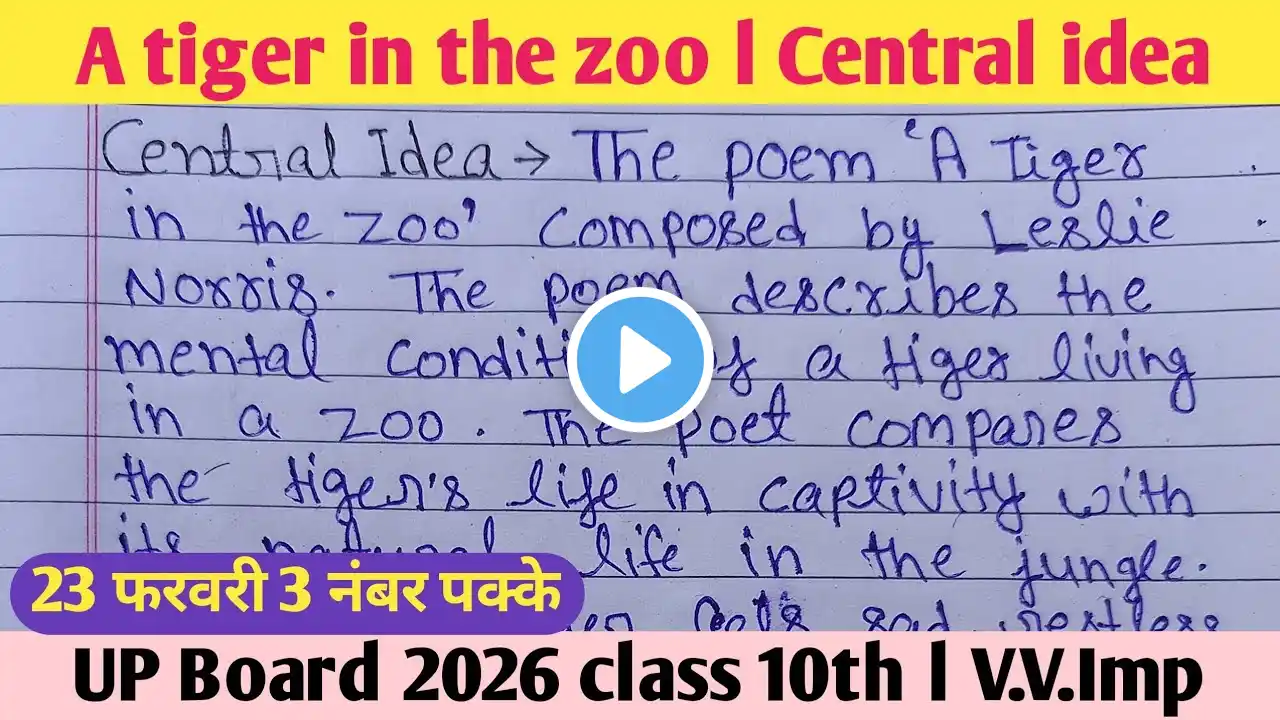 A tiger in the zoo | Central idea
Central Idea → The poem 'A Tiger
in the zoo' composed by Leslie
Norris. The poem describes the
mental of a tiger living
in a zoo. The poet compares
the tiger's life in captivity with
its natural life in the jungle.
23 फरवरी 3 नंबर पक्के
sad restless
UP Board 2026 class 10th | V.V.Imp